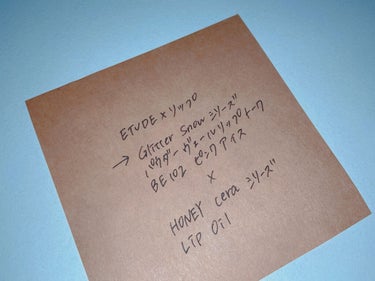 ETUDE × リップ
→ Glitter Snow シリーズ
パウダーヴェールリップトーク
BE102 ピンクアイス
×
HONEY cera シリーズ
Lip Oil